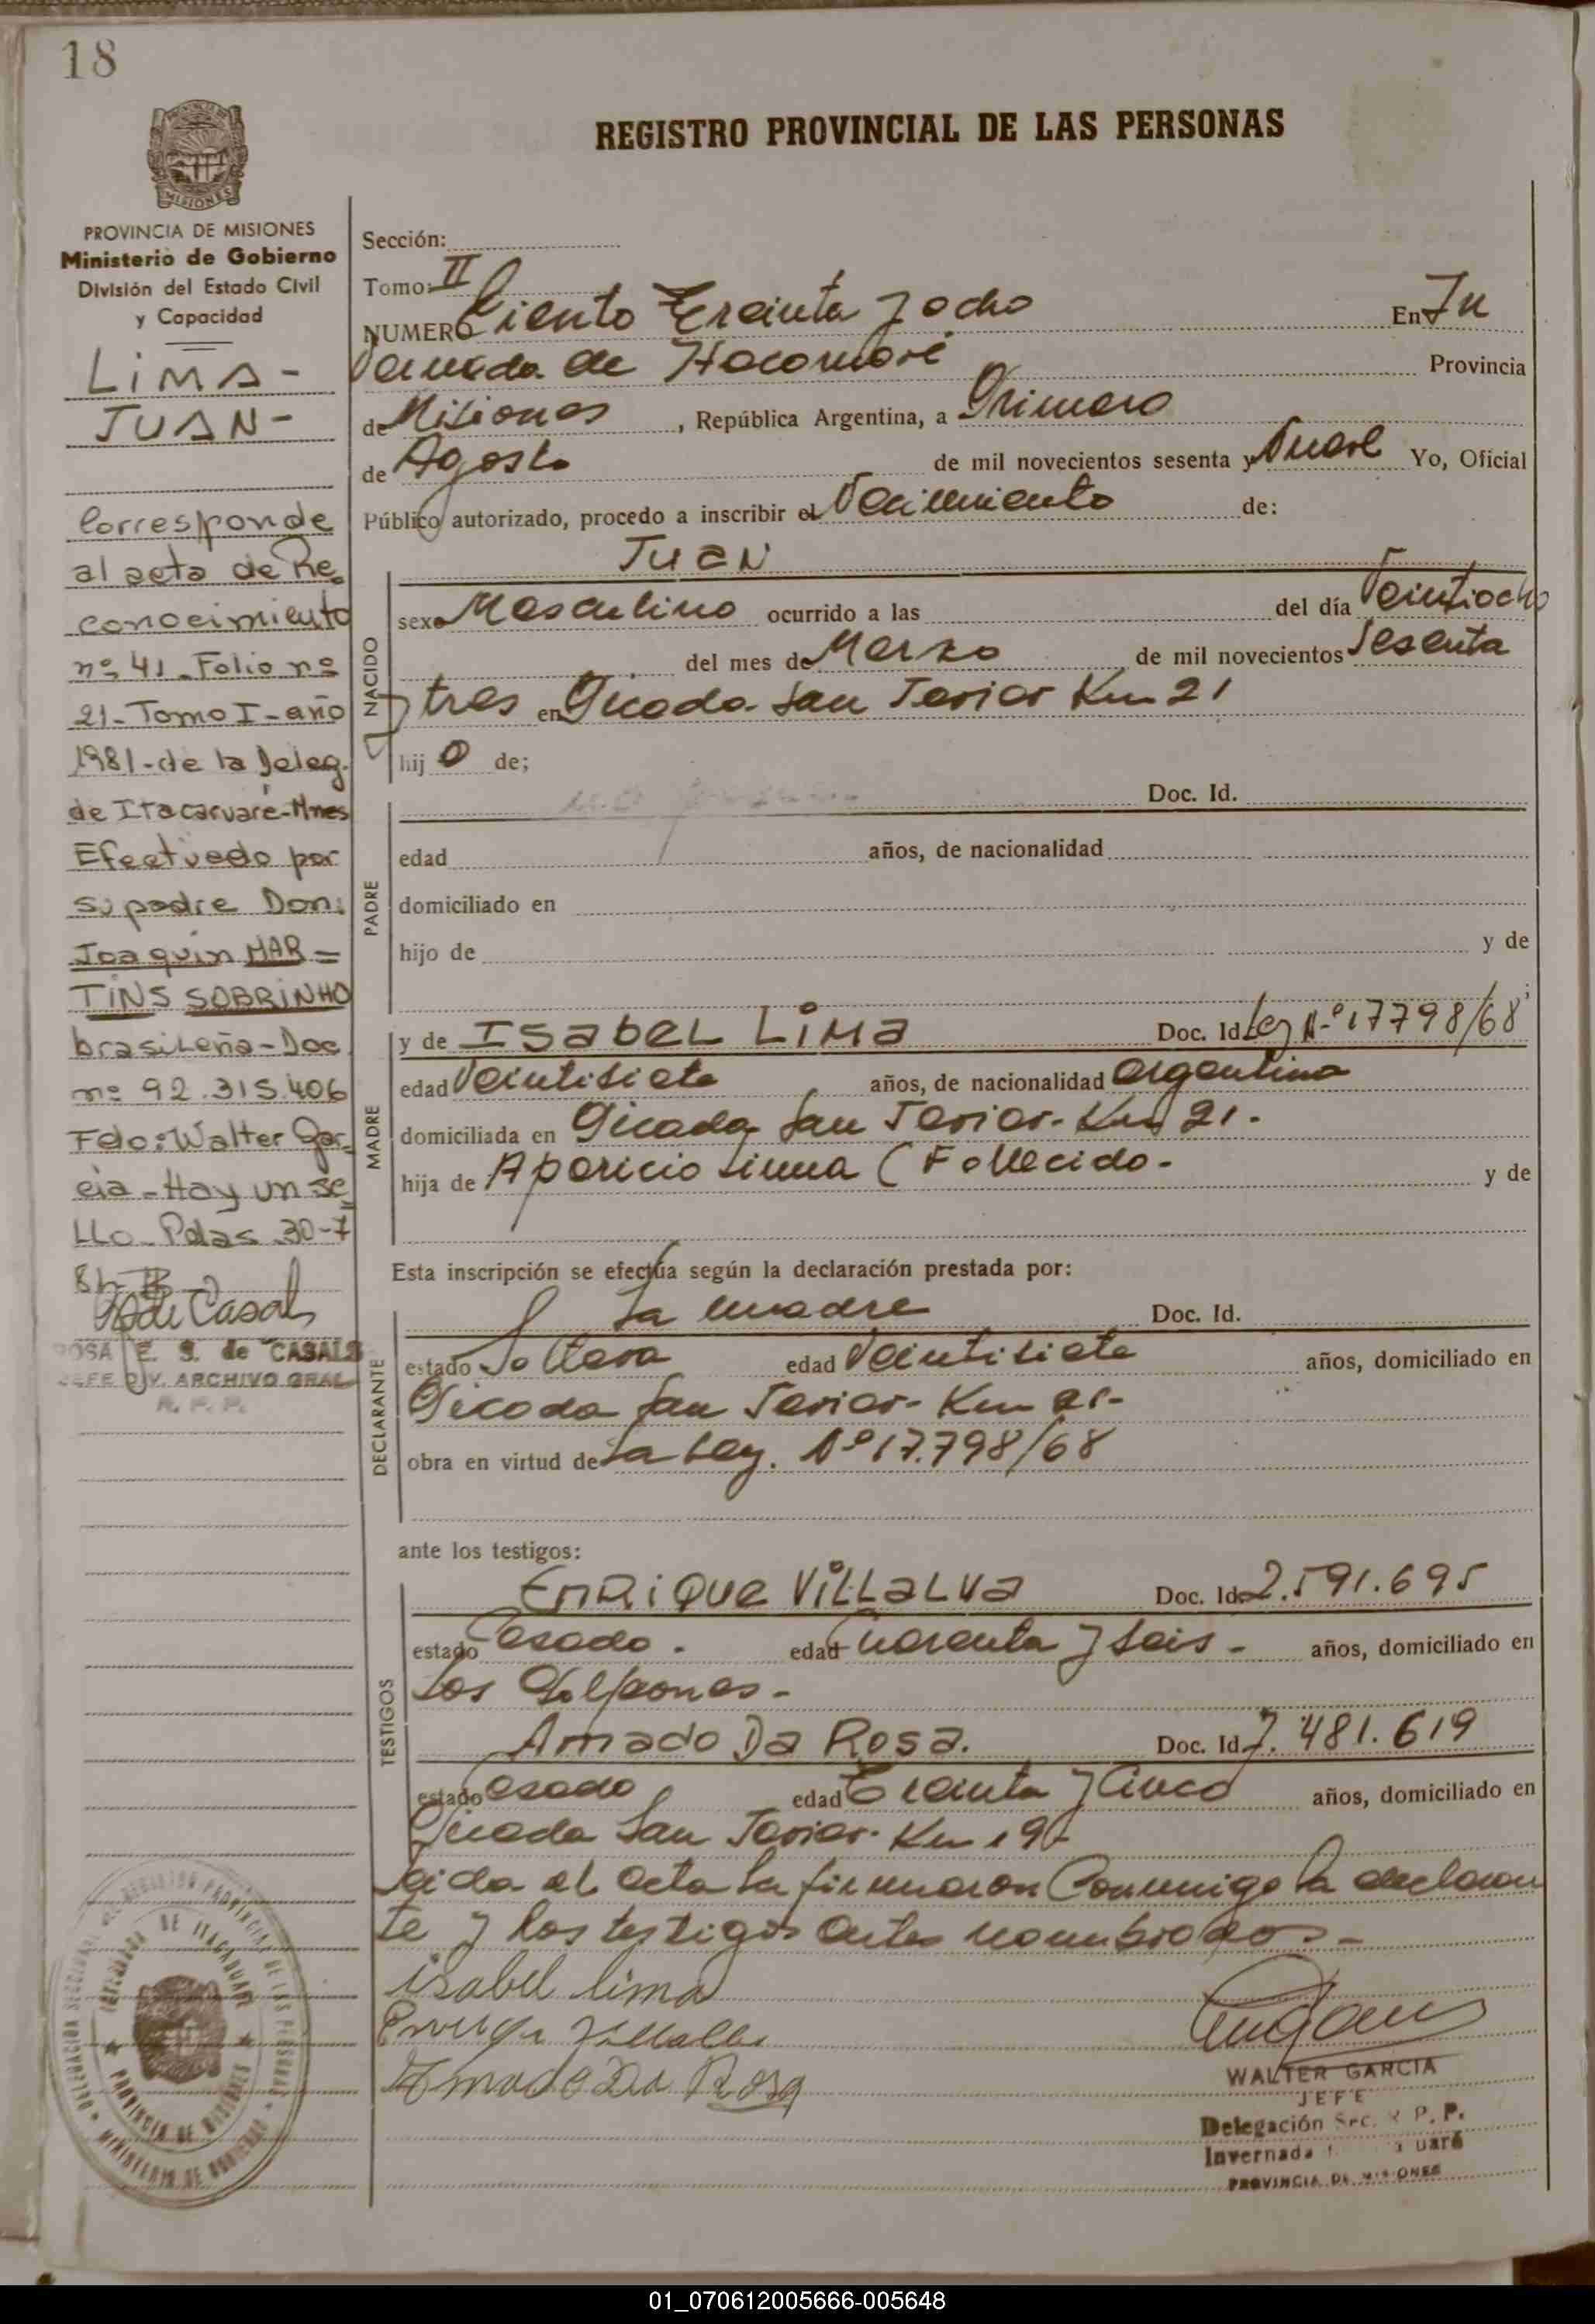 18
REGISTRO PROVINCIAL DE LAS PERSONAS
MISIONES
PROVINCIA DE MISIONES
Ministerio de Gobierno
División del Estado Civil
y Capacidad
LIMA-
JUAN-
Corresponde
al acta de Re
conocimiento
nº 41_Folio nº
21_Tomo I_año
1981-de la Deleg.
de Itacaruaré-Mnes
Efectuado por
su padre Don:
Joaquin MAR=
TINS SOBRINHO
brasileña-Doc
nº 92.315.406
Fdo: Walter Gar
cia_Hay un se
llo_Pdas 30-7
81-
R de Casals
ROSA E. S. de CASALS
JEFE DIV. ARCHIVO GRAL
R. P. P.
Sección:
Tomo: II
NUMERO Ciento Treinta y ocho En In
vernada de Itacaruaré Provincia
de Misiones, República Argentina, a Primero
de Agosto de mil novecientos sesenta y Nueve Yo, Oficial
Público autorizado, procedo a inscribir el Nacimiento de:
JUAN
NACIDO
sexo Masculino ocurrido a las del día Veintiocho
del mes de Marzo de mil novecientos Sesenta
y tres en Picada San Javier Km 21
hijo de;
PADRE
Doc. Id.
edad años, de nacionalidad
domiciliado en
hijo de y de
MADRE
y de ISABEL LIMA Doc. Id. Ley Nº 17798/68
edad Veintisiete años, de nacionalidad Argentina
domiciliada en Picada San Javier-Km 21.
hija de Aparicio Lima (Fallecido- y de
Esta inscripción se efectúa según la declaración prestada por:
DECLARANTE
La madre Doc. Id.
estado Soltera edad Veintisiete años, domiciliado en
Picada San Javier- Km 21-
obra en virtud de La Ley. Nº 17.798/68
ante los testigos:
TESTIGOS
ENRIQUE VILLALVA Doc. Id. 2.591.695
estado Casado. edad Cuarenta y seis- años, domiciliado en
Los Galpones-
Amado Da Rosa. Doc. Id. 7.481.619
estado Casado edad Treinta y Cinco años, domiciliado en
Picada San Javier- Km 19-
Leida el Acta la firmaron Conmigo la declaran
te y los testigos antes nombrados-
isabel lima
Enrique Villalba
Amado Da Rosa
WALTER GARCIA
JEFE
Delegación Sec. R P. P.
Invernada
PROVINCIA DE MISIONES
01_070612005666-005648